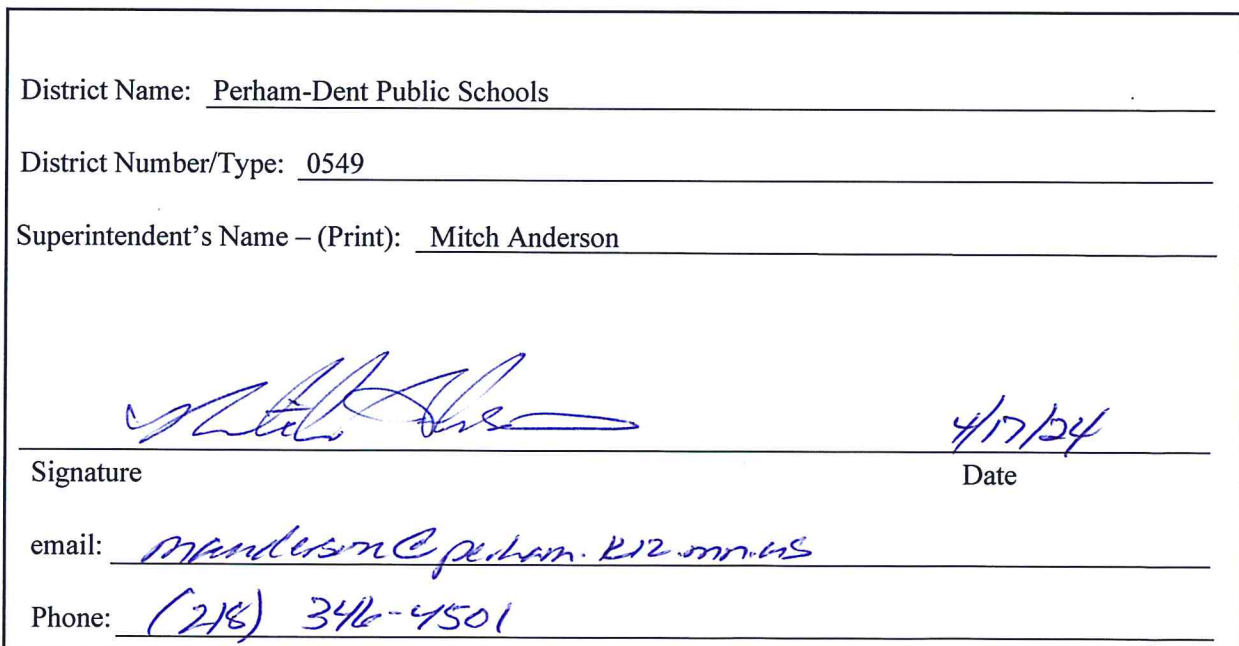 District Name: Perham-Dent Public Schools
District Number/Type: 0549
Superintendent's Name – (Print): Mitch Anderson
4/17/24
Signature Date
email: manderson@perham.k12.mn.us
Phone: (218) 346-4501